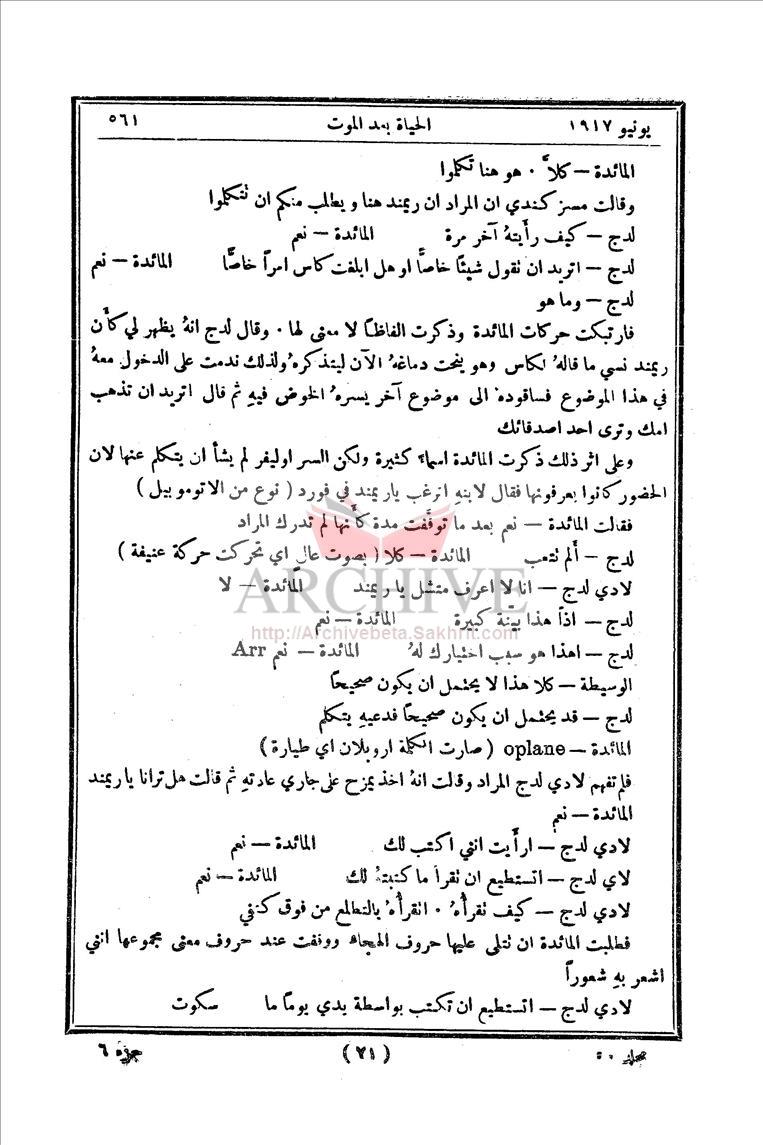 يونيو ١٩١٧ الحياة بعد الموت ٥٦١
المائدة — كلاَّ ٠ هو هنا تكلموا
وقالت مسز كندي ان المراد ان ريمند هنا ويطلب منكم ان تتكلموا
لدج — كيف رأيتهُ آخر مرة المائدة — نعم
لدج — اتريد ان تقول شيئًا خاصًّا او هل ابلغت كاس امراً خاصًّا المائدة — نعم
لدج — وما هو
فارتبكت حركات المائدة وذكرت الفاظًا لا معنى لها ٠ وقال لدج انهُ يظهر لي كأن
ريمند نسي ما قالهُ لكاس وهو ينحت دماغهُ الآن ليتذكرهُ ولذلك ندمت على الدخول معهُ
في هذا الموضوع فساقودهُ الى موضوع آخر يسرهُ الخوض فيهِ ثم قال اتريد ان تذهب
امك وترى احد اصدقائك
وعلى اثر ذلك ذكرت المائدة اسماءً كثيرة ولكن السر اوليفر لم يشأ ان يتكلم عنها لان
الحضور كانوا يعرفونها فقال لابنهِ اترغب يا ريمند في فورد ( نوع من الاتوموبيل )
فقالت المائدة — نعم بعد ما توقَّفت مدة كأنها لم تدرك المراد
لدج — ألم تتعب المائدة — كلا ( بصوت عالٍ اي تحركت حركة عنيفة )
لادي لدج — انا لا اعرف متشل يا ريمند المائدة — لا
لدج — اذاً هذا بيّنة كبيرة المائدة — نعم
لدج — اهذا هو سبب اختيارك لهُ المائدة — نعم Arr
الوسيطة — كلا هذا لا يحتمل ان يكون صحيحًا
لدج — قد يحتمل ان يكون صحيحًا فدعيهِ يتكلم
المائدة — oplane ( صارت الكلمة اروبلان اي طيارة )
فلم تفهم لادي لدج المراد وقالت انهُ اخذ يمزح على جاري عادتهِ ثم قالت هل ترانا يا ريمند
المائدة — نعم
لادي لدج — ارأيت انني اكتب لك المائدة — نعم
لاي لدج — اتستطيع ان تقرأ ما كتبتهُ لك المائدة — نعم
لادي لدج — كيف تقرأهُ ٠ اتقرأهُ بالتطلع من فوق كتفي
فطلبت المائدة ان تتلى عليها حروف الهجاء ووقفت عند حروف معنى مجموعها انني
اشعر بهِ شعوراً
لادي لدج — اتستطيع ان تكتب بواسطة يدي يومًا ما سكوت
جزء ٦ (٧١) مجلد ٥٠
ARCHIVE
http://Archivebeta.Sakhrit.com